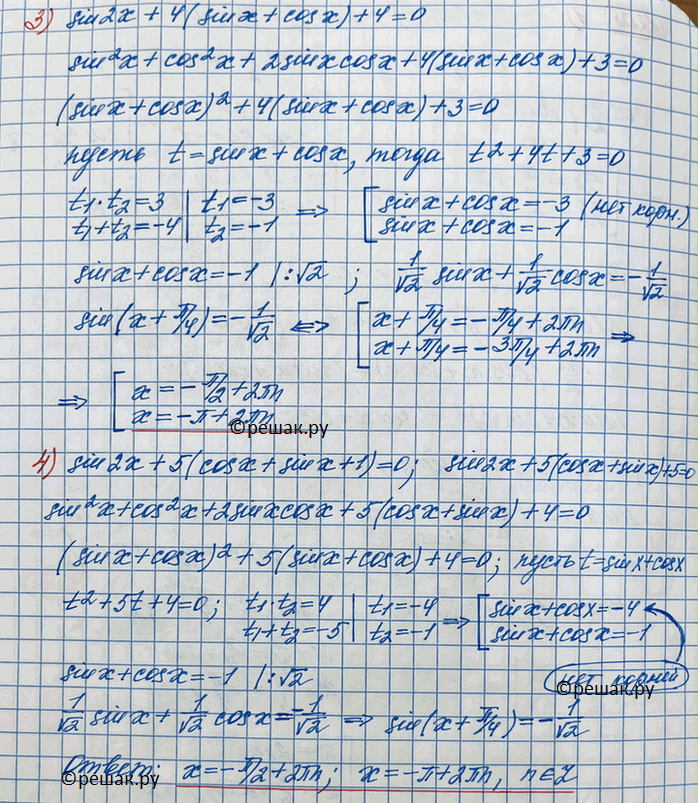 3) sin2x + 4(sinx + cosx) + 4 = 0
sin²x + cos²x + 2sinxcosx + 4(sinx + cosx) + 3 = 0
(sinx + cosx)² + 4(sinx + cosx) + 3 = 0
пусть t = sinx + cosx, тогда t² + 4t + 3 = 0
t₁·t₂ = 3 | t₁ = -3 => [ sinx + cosx = -3 (нет корн.)
t₁ + t₂ = -4 | t₂ = -1 [ sinx + cosx = -1
sinx + cosx = -1 |:√2 ; 1/√2 sinx + 1/√2 cosx = -1/√2
sin(x + π/4) = -1/√2 <=> [ x + π/4 = -π/4 + 2πn
[ x + π/4 = -3π/4 + 2πn =>
=> [ x = -π/2 + 2πn
[ x = -π + 2πn
©решак.ру
4) sin2x + 5(cosx + sinx + 1) = 0; sin2x + 5(cosx + sinx) + 5 = 0
sin²x + cos²x + 2sinxcosx + 5(cosx + sinx) + 4 = 0
(sinx + cosx)² + 5(sinx + cosx) + 4 = 0; пусть t = sinx + cosx
t² + 5t + 4 = 0; t₁·t₂ = 4 | t₁ = -4 => [ sinx + cosx = -4
t₁ + t₂ = -5 | t₂ = -1 [ sinx + cosx = -1
sinx + cosx = -1 |:√2 нет корней
©решак.ру
1/√2 sinx + 1/√2 cosx = -1/√2 => sin(x + π/4) = -1/√2
Ответ: x = -π/2 + 2πn; x = -π + 2πn, n∈Z
©решак.ру